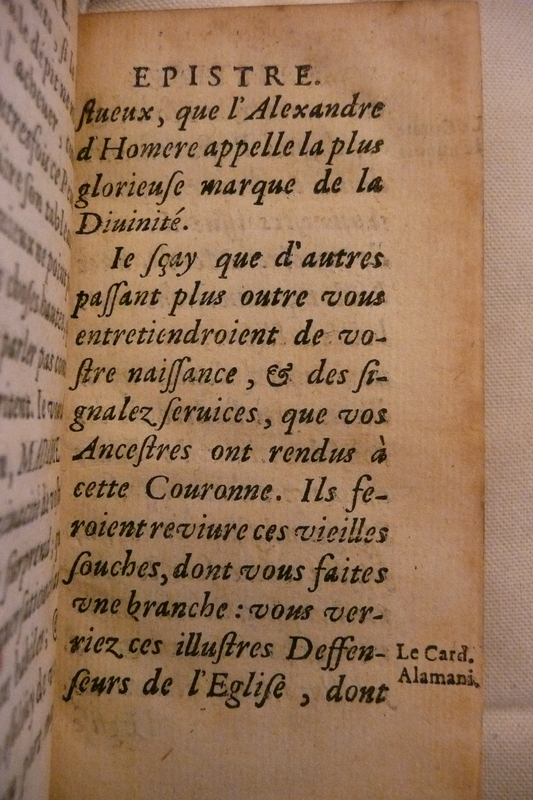 EPISTRE.
ſtueux, que l'Alexandre
d'Homere appelle la plus
glorieuſe marque de la
Diuinité.
Ie ſçay que d'autres
paſſant plus outre vous
entretiendroient de vo-
ſtre naiſſance, & des ſi-
gnalez ſeruices, que vos
Anceſtres ont rendus à
cette Couronne. Ils fe-
roient reviure ces vieilles
ſouches, dont vous faites
vne branche : vous ver-
riez ces illuſtres Deffen-
ſeurs de l'Egliſe, dont
Le Card.
Alamani.